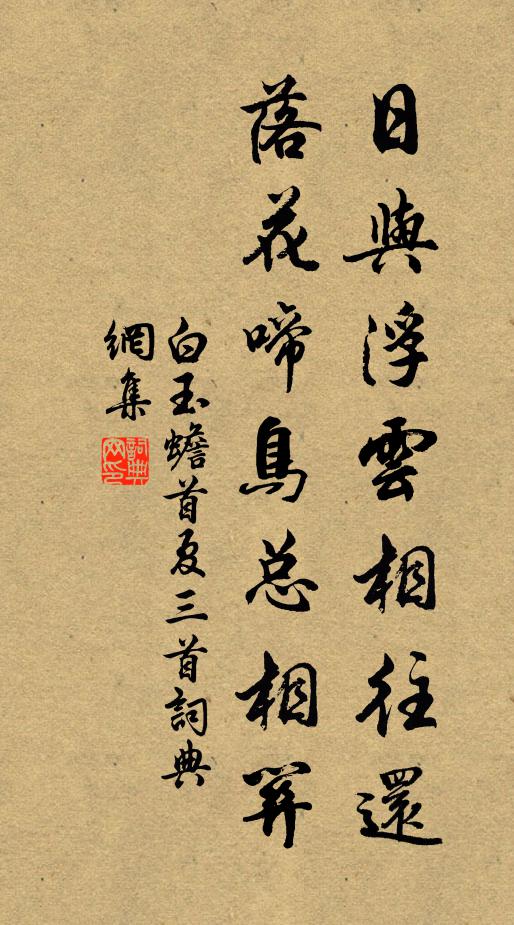 日與浮雲相往還
落花啼鳥总相關
白玉蟾首夏三首詞典
網集
詞典
网印